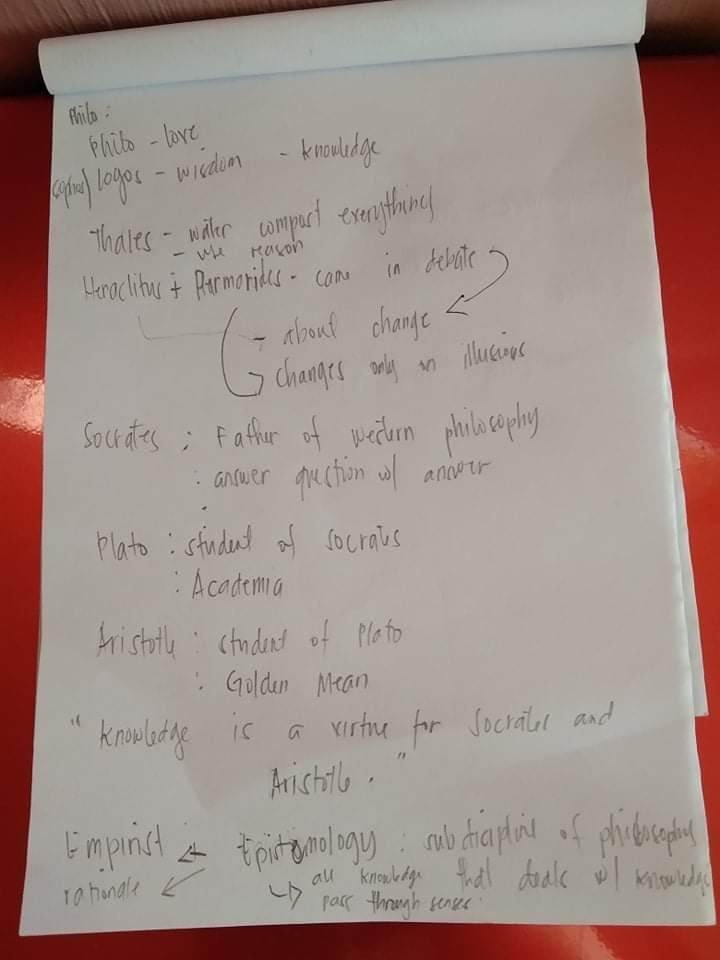 Philo :
Philo - love
(sophos) logos - wisdom - knowledge
Thales - water compost everythings
- use reason
Heraclitus + Parmorides - came in debate
- about change
changes only an illusions
Socrates : Father of western philosophy
: answer question w/ answer
:
Plato : student of Socrates
: Academia
Aristotle : student of Plato
: Golden Mean
" knowledge is a virtue for Socrates and
Aristotle . "
Empirist Epistomology : subdicipline of philosophy
rationale all knowledge that deals w/ knowledge
pass through senses.